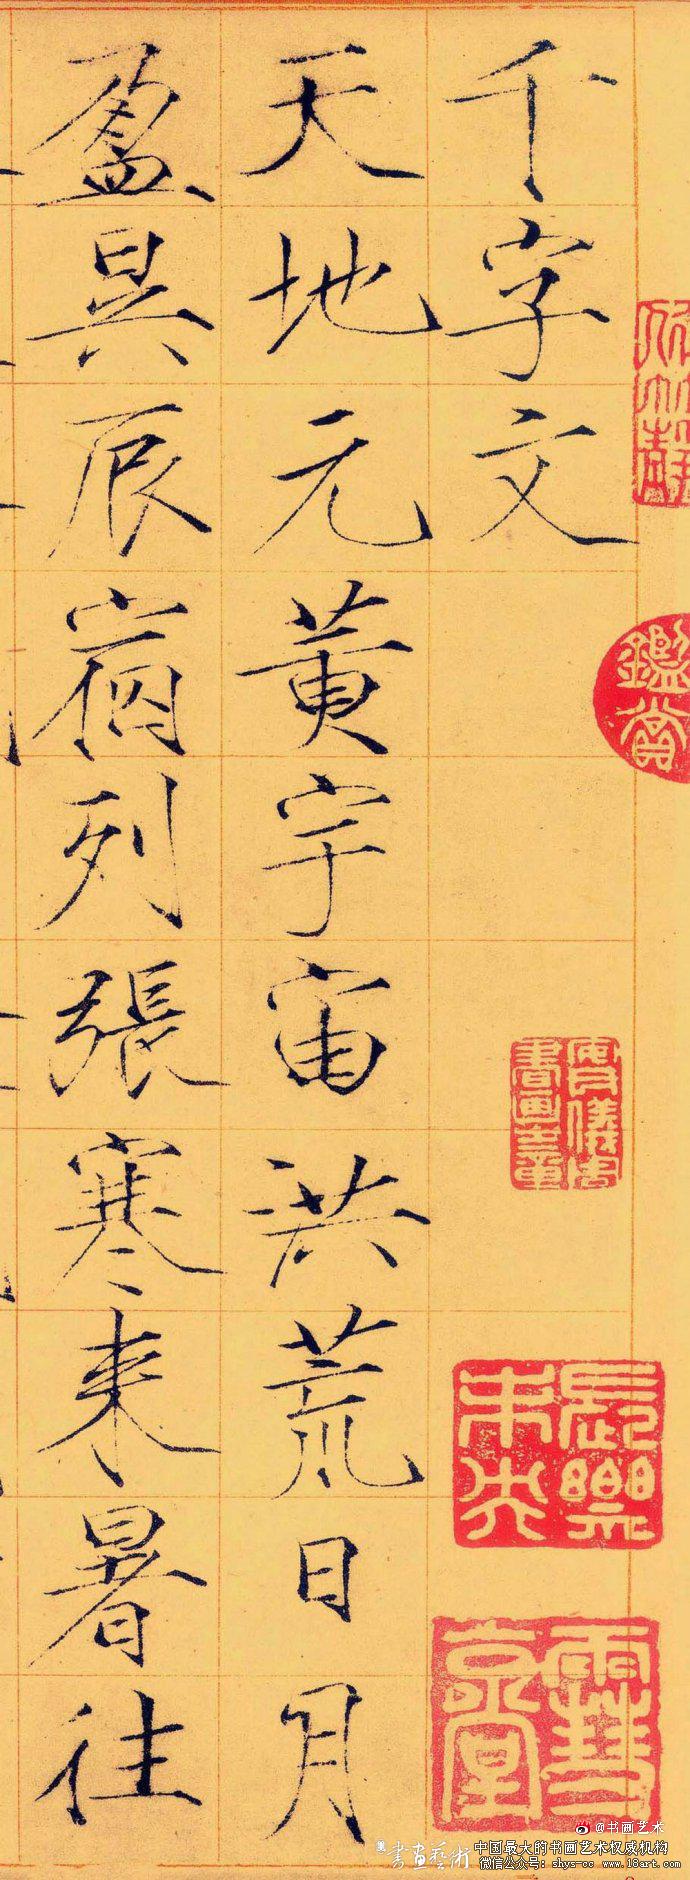 千字文
天地元黃宇宙洪荒日月
盈昃辰宿列張寒來暑往
鑑賞
@书画艺术
書畫藝術
中国最大的书画艺术权威机构
微信公众号: shys-cc www.18art.com